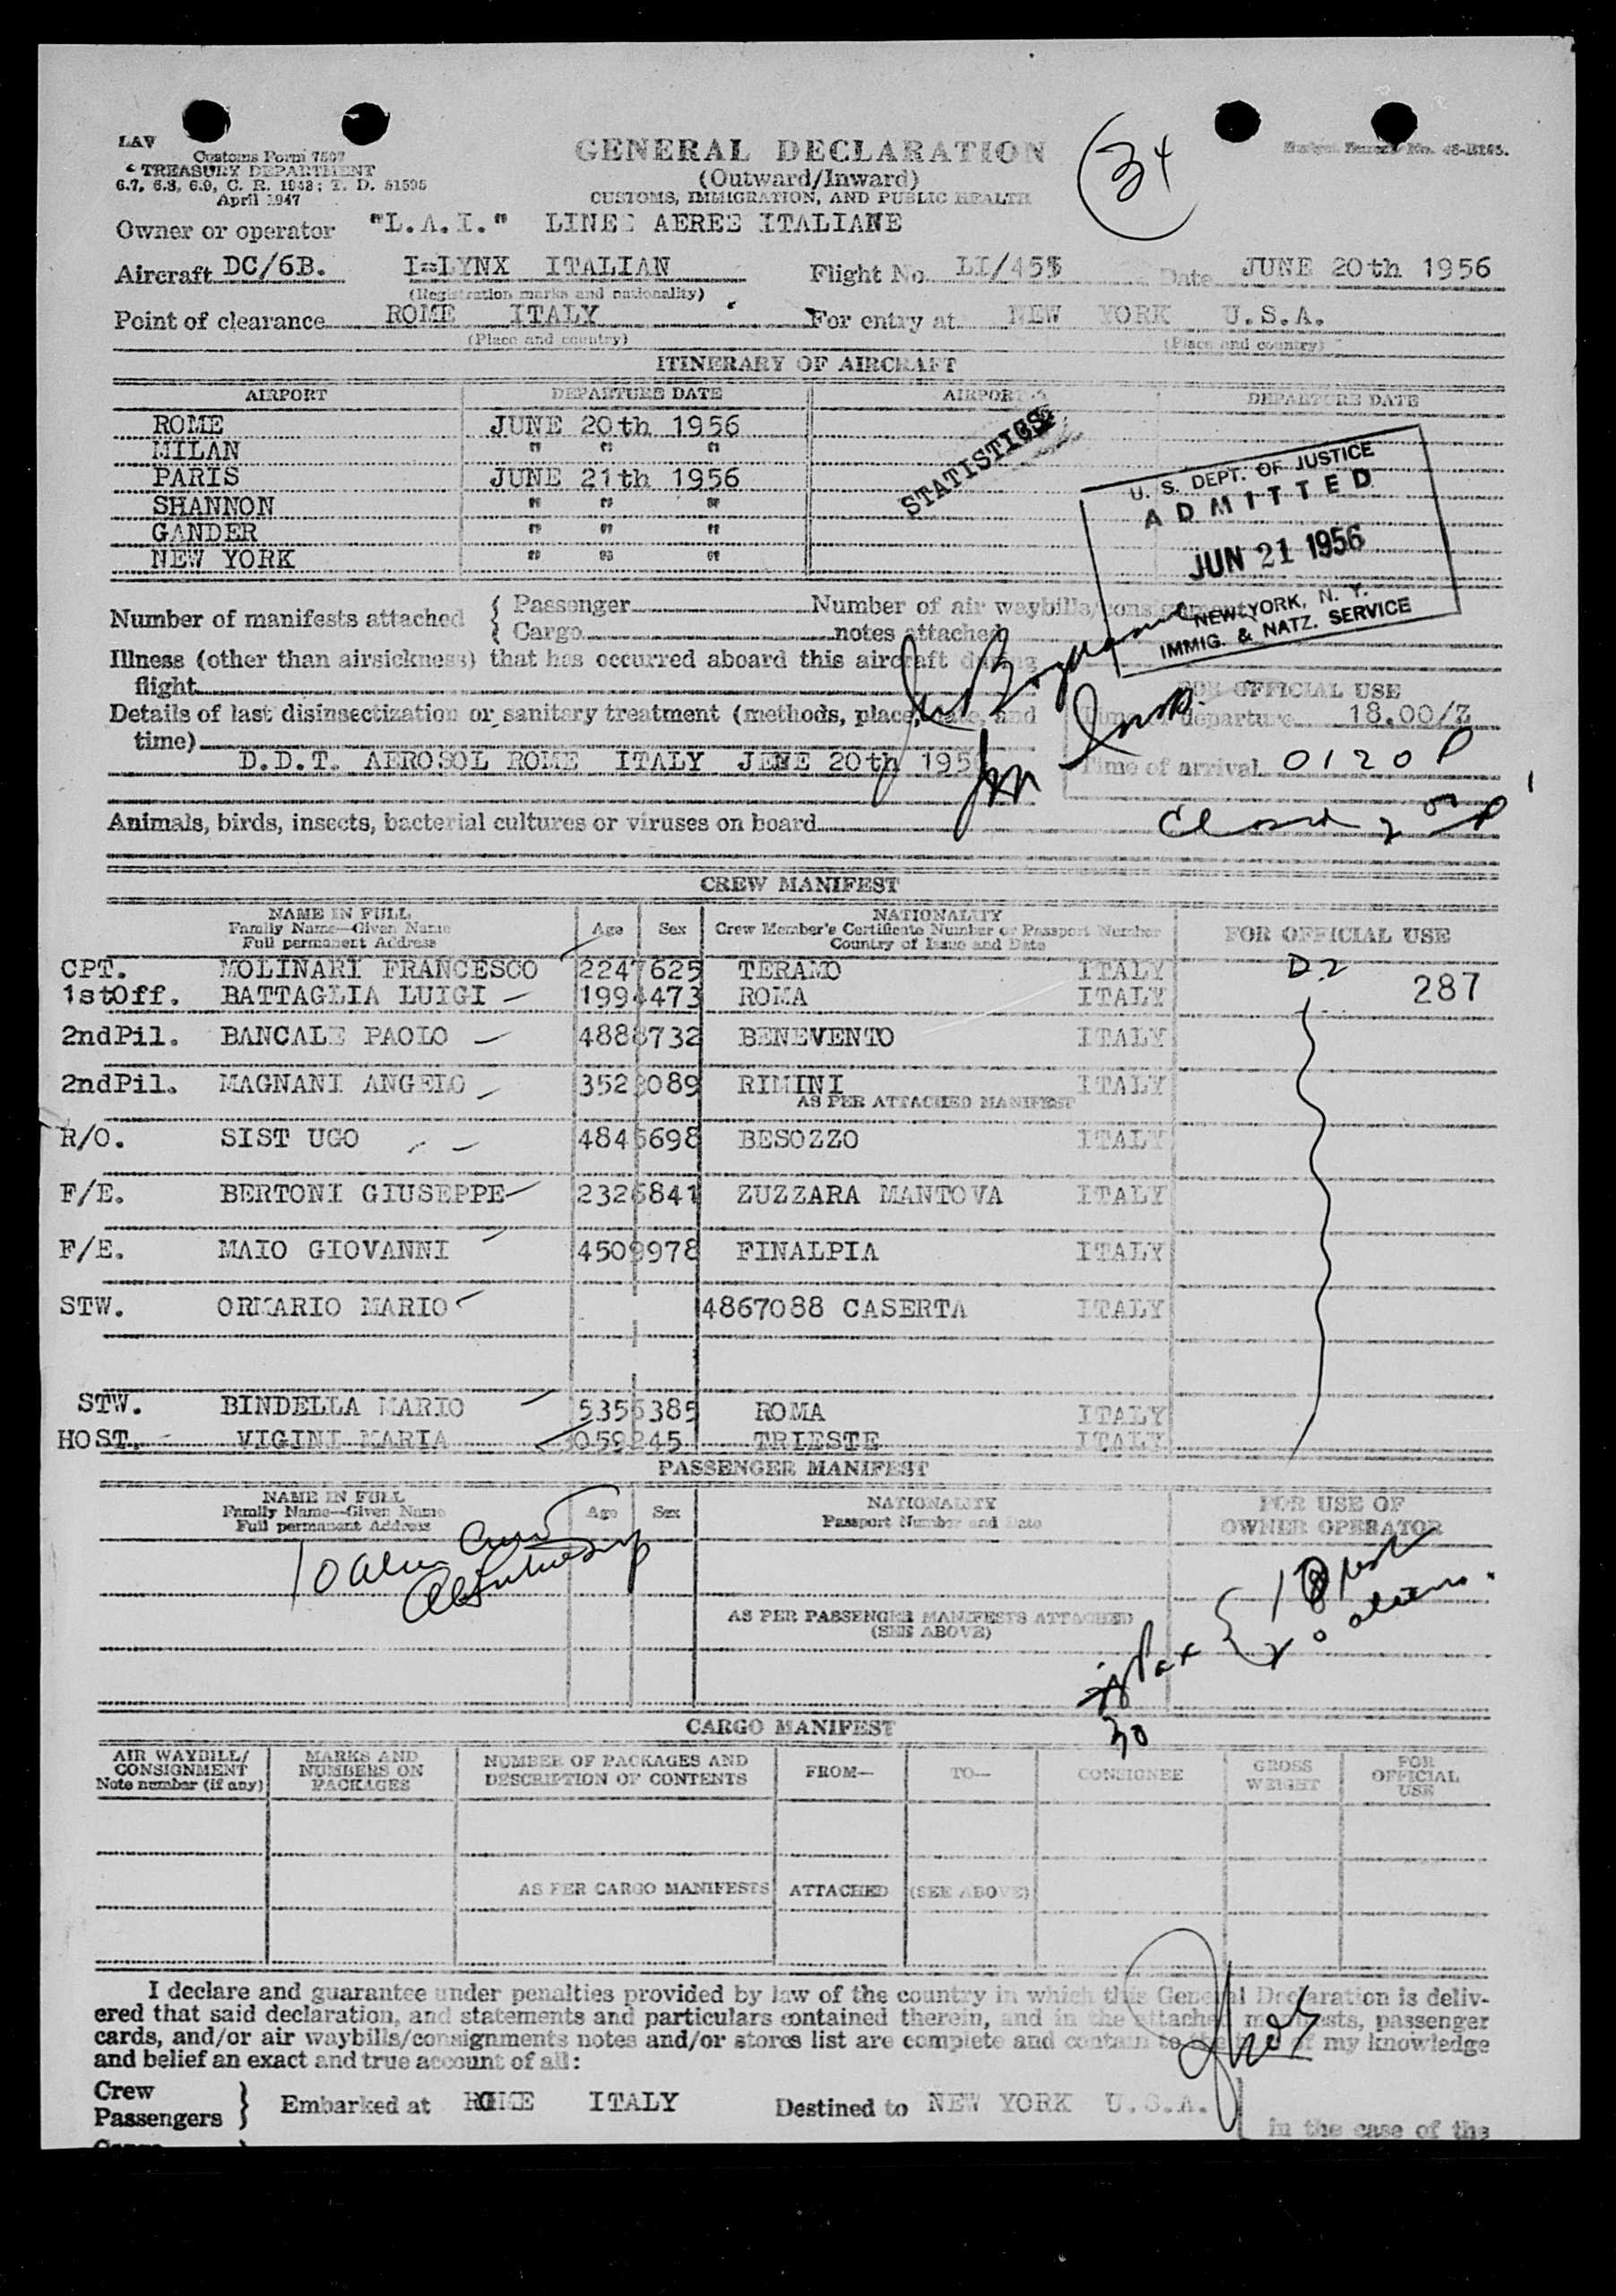 LAV
Customs Form 7507
TREASURY DEPARTMENT
6.7, 6.8, 6.9, C. R. 1943; T. D. 51595
April 1947
GENERAL DECLARATION
(Outward/Inward)
CUSTOMS, IMMIGRATION, AND PUBLIC HEALTH
34
Owner or operator "L.A.I." LINEE AEREE ITALIANE
Aircraft DC/6B. I=LYNX ITALIAN Flight No. Date JUNE 20th 1956
(Registration marks and nationality)
Point of clearance ROME ITALY For entry at NEW YORK U.S.A.
(Place and country) (Place and country)
ITINERARY OF AIRCRAFT
AIRPORT DEPARTURE DATE AIRPORT DEPARTURE DATE
ROME JUNE 20th 1956
MILAN " " "
PARIS JUNE 21th 1956
SHANNON " " "
GANDER " " "
NEW YORK " " "
STATISTICS
U. S. DEPT. OF JUSTICE
ADMITTED
JUN 21 1956
NEW YORK, N. Y.
IMMIG. & NATZ. SERVICE
Number of manifests attached { Passenger Number of air waybills/consignment
{ Cargo notes attached
Illness (other than airsickness) that has occurred aboard this aircraft during
flight
FOR OFFICIAL USE
Details of last disinsectization or sanitary treatment (methods, place, date, and
time)
departure 18.00/Z
D.D.T. AEROSOL ROME ITALY JENE 20th 195
Time of arrival 0120 P
Animals, birds, insects, bacterial cultures or viruses on board
CREW MANIFEST
NAME IN FULL
Family Name—Given Name
Full permanent Address
Age Sex
NATIONALITY
Crew Member's Certificate Number or Passport Number
Country of Issue and Date
FOR OFFICIAL USE
CPT. MOLINARI FRANCESCO 2247625 TERAMO ITALY D2
1stOff. BATTAGLIA LUIGI 1994473 ROMA ITALY 287
2ndPil. BANCALE PAOLO 4888732 BENEVENTO ITALY
2ndPil. MAGNANI ANGELO RIMINI ITALY
AS PER ATTACHED MANIFEST
R/O. SIST UGO BESOZZO ITALY
F/E. BERTONI GIUSEPPE 2326841 ZUZZARA MANTOVA ITALY
F/E. MAIO GIOVANNI 4509978 FINALPIA ITALY
STW. ORMARIO MARIO 4867088 CASERTA ITALY
STW. BINDELLA MARIO 5355385 ROMA ITALY
HOST. VIGINI MARIA TRIESTE ITALY
PASSENGER MANIFEST
NAME IN FULL
Family Name—Given Name
Full permanent Address
Age Sex
NATIONALITY
Passport Number and Date
FOR USE OF
OWNER OPERATOR
10 alien Crew
AS PER PASSENGER MANIFESTS ATTACHED
(SEE ABOVE)
Pax
30
CARGO MANIFEST
AIR WAYBILL/
CONSIGNMENT
Note number (if any)
MARKS AND
NUMBERS ON
PACKAGES
NUMBER OF PACKAGES AND
DESCRIPTION OF CONTENTS
FROM—
TO—
CONSIGNEE
GROSS
WEIGHT
FOR
OFFICIAL
USE
AS PER CARGO MANIFESTS ATTACHED (SEE ABOVE)
I declare and guarantee under penalties provided by law of the country in which this General Declaration is deliv-
ered that said declaration, and statements and particulars contained therein, and in the attached manifests, passenger
cards, and/or air waybills/consignments notes and/or stores list are complete and contain to the of my knowledge
and belief an exact and true account of all:
Crew
Passengers } Embarked at ROME ITALY Destined to NEW YORK U.S.A.
in the case of the